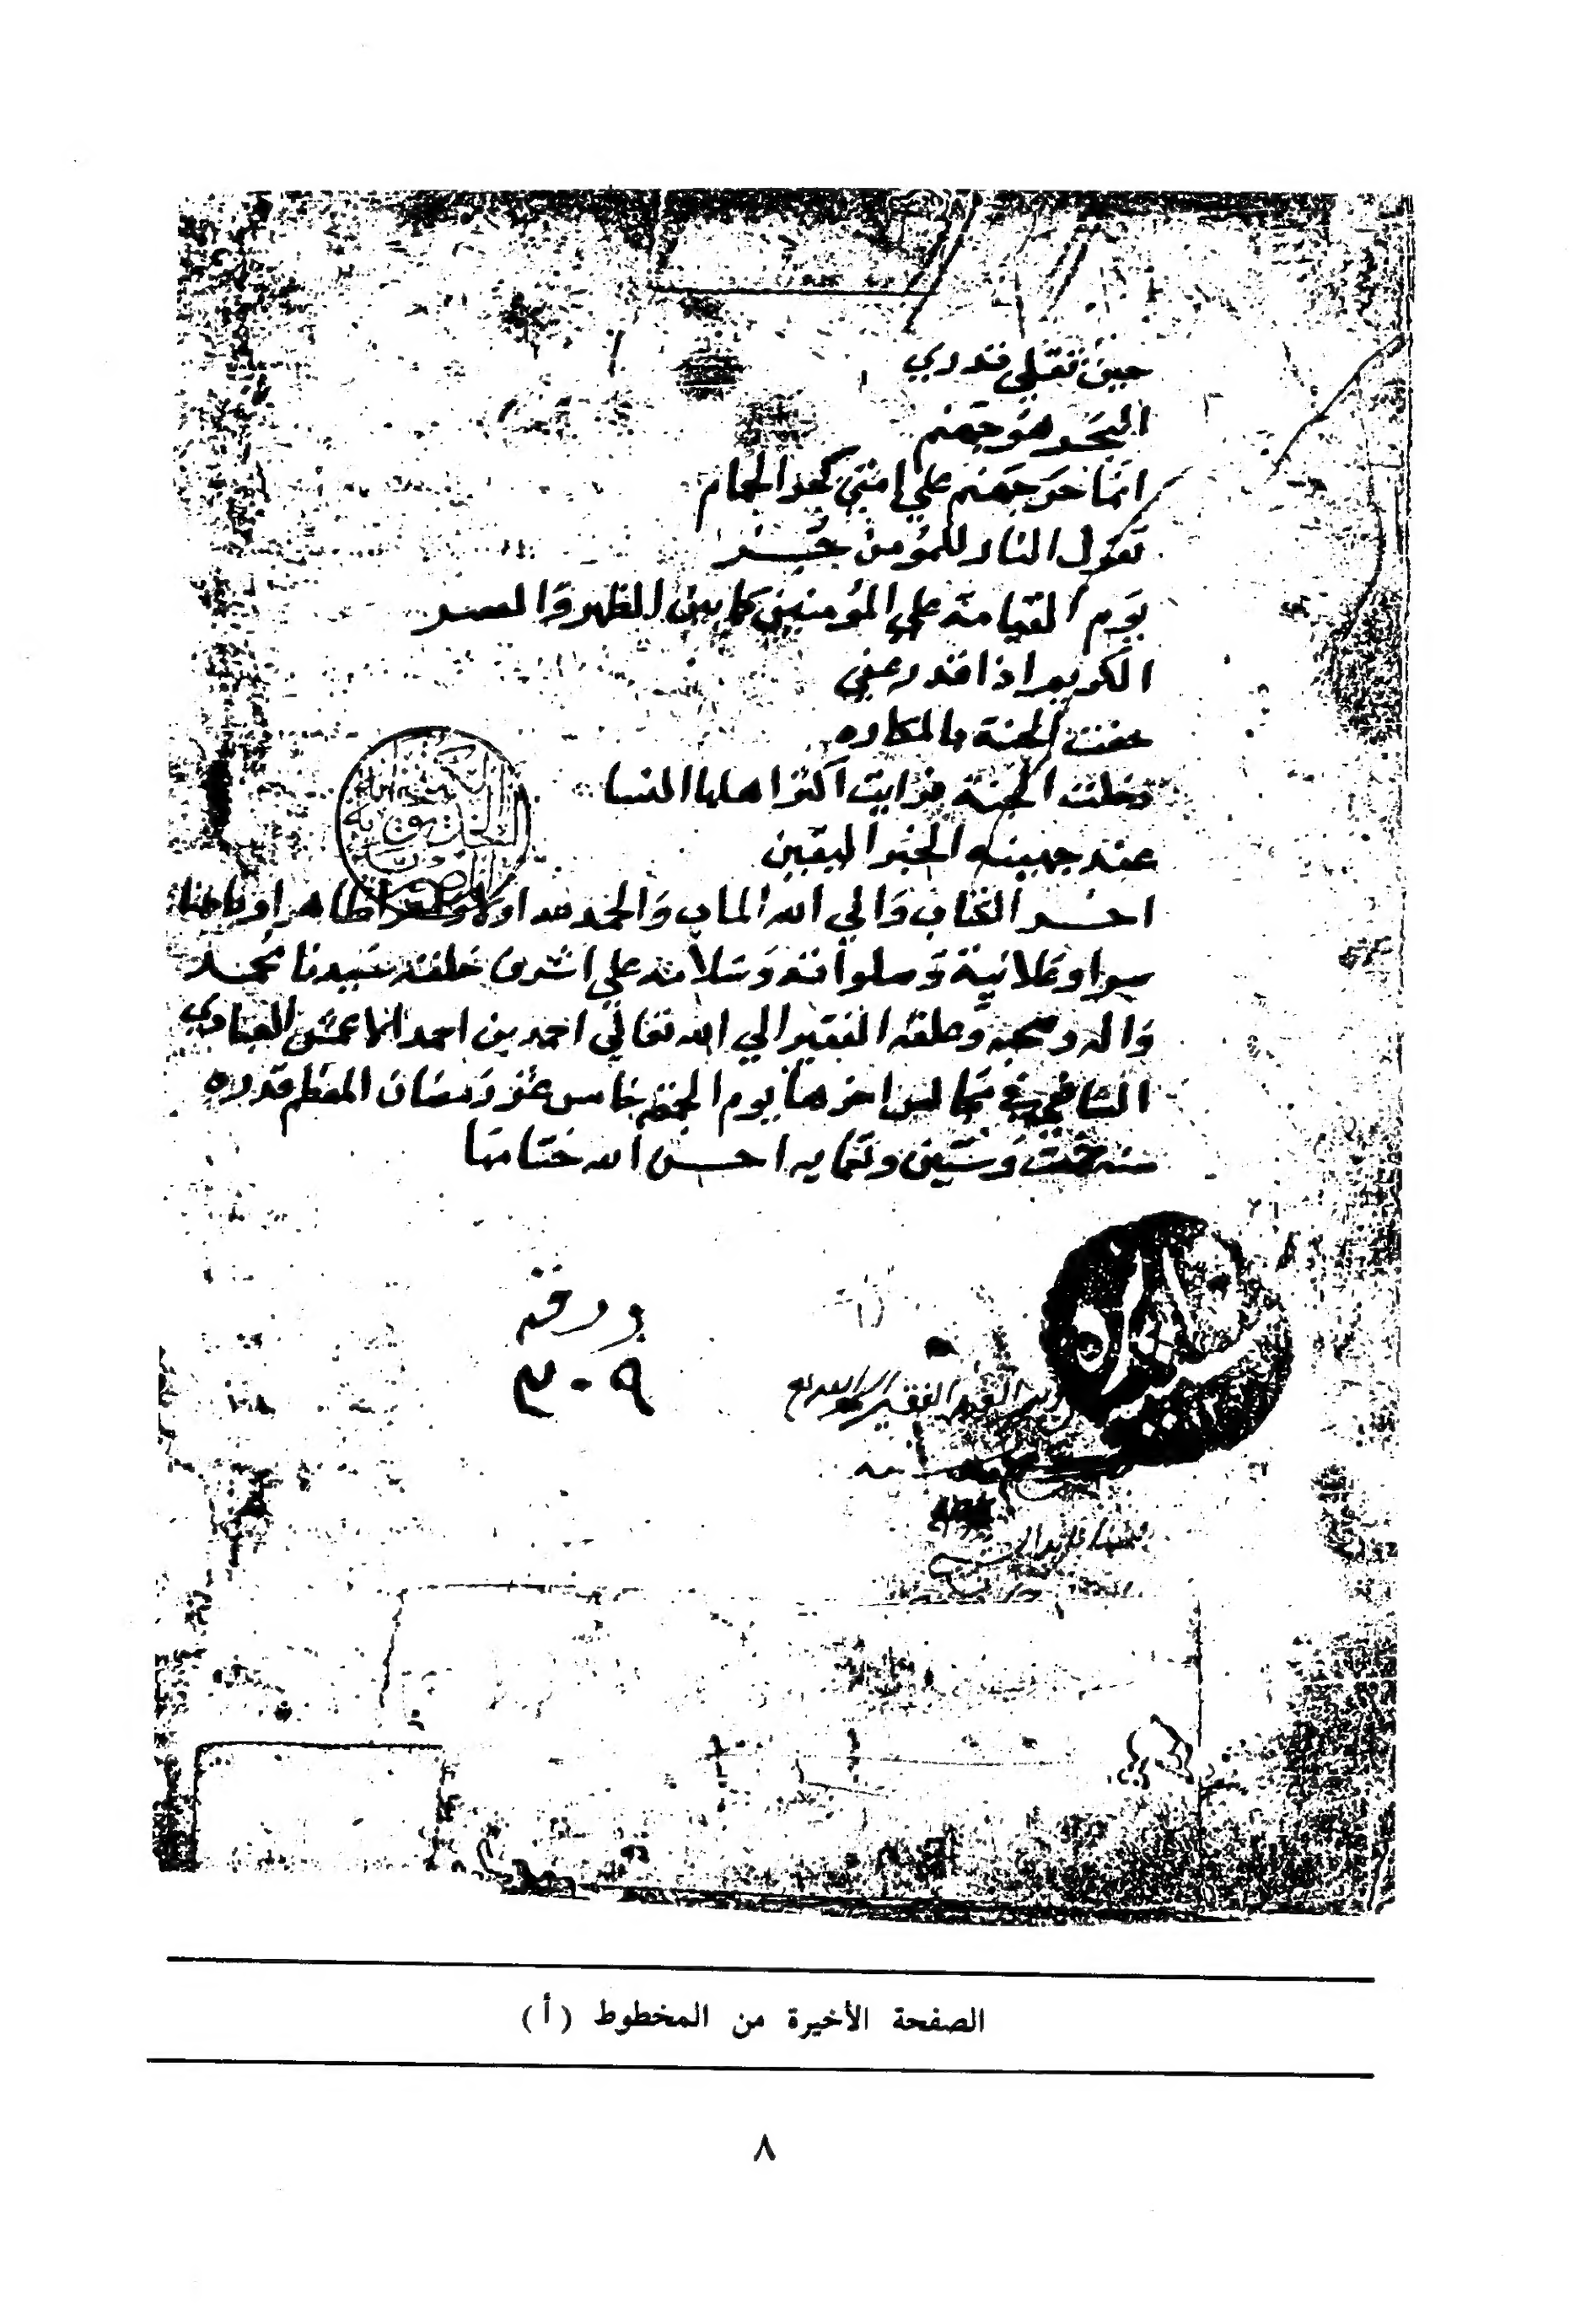 حين تقلي قدري
البحر هو جهنم
انما حر جهنم علي امتي كحر الحمام
تقول النار للمؤمن جز
يوم القيامة علي المؤمنين كما بين الظهر والعصر
الكريم اذا قدر عفي
حفت الجنة بالمكاره
دخلت الجنة فرايت اكثر اهلها النسا
عند جهينه الخبر اليقين
اخر الكتاب والي الله الماب والحمد لله اولا واخرا ظاهرا وباطنا
سرا وعلانية وصلواته وسلامه علي اشرف خلقه سيدنا محمد
واله وصحبه وعلقه الفقير الي الله تعالي احمد بن احمد الاعمش العبادي
الشافعي في مجالس اخرها يوم الجمعة خامس عشر رمضان المعظم قدره
سنه ست وستين وثمانمايه احسن الله ختامها
ورقه
٣٠٩
العبد الفقير
الصفحة الأخيرة من المخطوط (أ)
٨